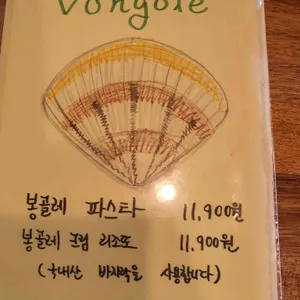 Vongole
봉골레 파스타 11,900원
봉골레 크림 리조또 11,900원
(국내산 바지락을 사용합니다)